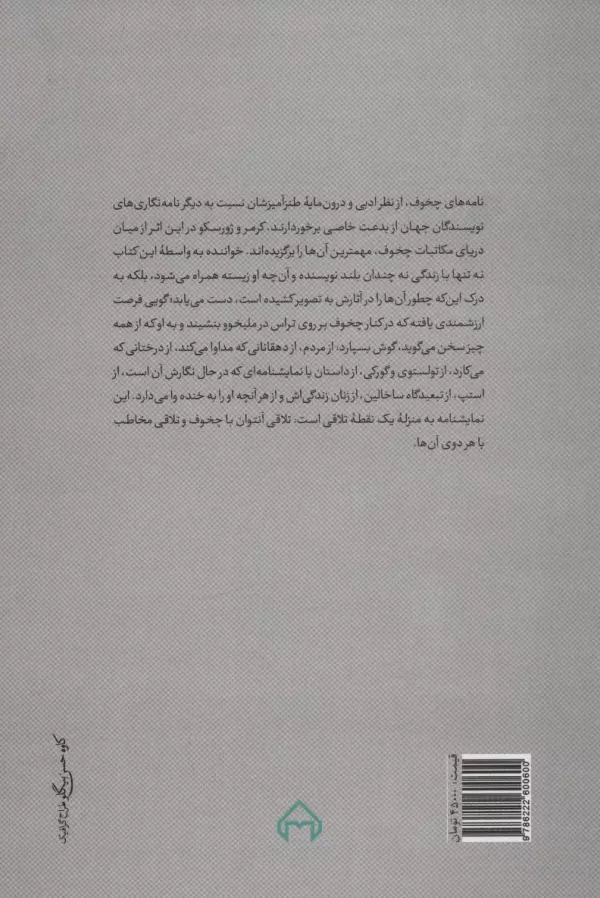 نامه‌های چخوف، از نظر ادبی و درون‌مایهٔ طنزآمیزشان نسبت به دیگر نامه‌نگاری‌های
نویسندگان جهان از بدعت خاصی برخوردارند. کرمر و ژورسکو در این اثر از میان
دریای مکاتبات چخوف، مهمترین آن‌ها را برگزیده‌اند. خواننده به واسطهٔ این کتاب
نه تنها با زندگی نه چندان بلند نویسنده و آن‌چه او زیسته همراه می‌شود، بلکه به
درک این‌که چطور آن‌ها را در آثارش به تصویر کشیده است، دست می‌یابد؛ گویی فرصت
ارزشمندی یافته که در کنار چخوف بر روی تراس در ملیخوو بنشیند و به او که از همه
چیز سخن می‌گوید، گوش بسپارد: از مردم، از دهقانانی که مداوا می‌کند، از درختانی که
می‌کارد، از تولستوی و گورکی، از داستان یا نمایشنامه‌ای که در حال نگارش آن است، از
استپ، از تبعیدگاه ساخالین، از زنان زندگی‌اش و از هر آنچه او را به خنده وا می‌دارد. این
نمایشنامه به منزلهٔ یک نقطهٔ تلاقی است: تلاقی آنتوان با چخوف و تلاقی مخاطب
با هر دوی آن‌ها.
کاوه حسن‌بیگلو طراح گرافیک
قیمت: ۴۵۰۰۰ تومان
9 786222 600600